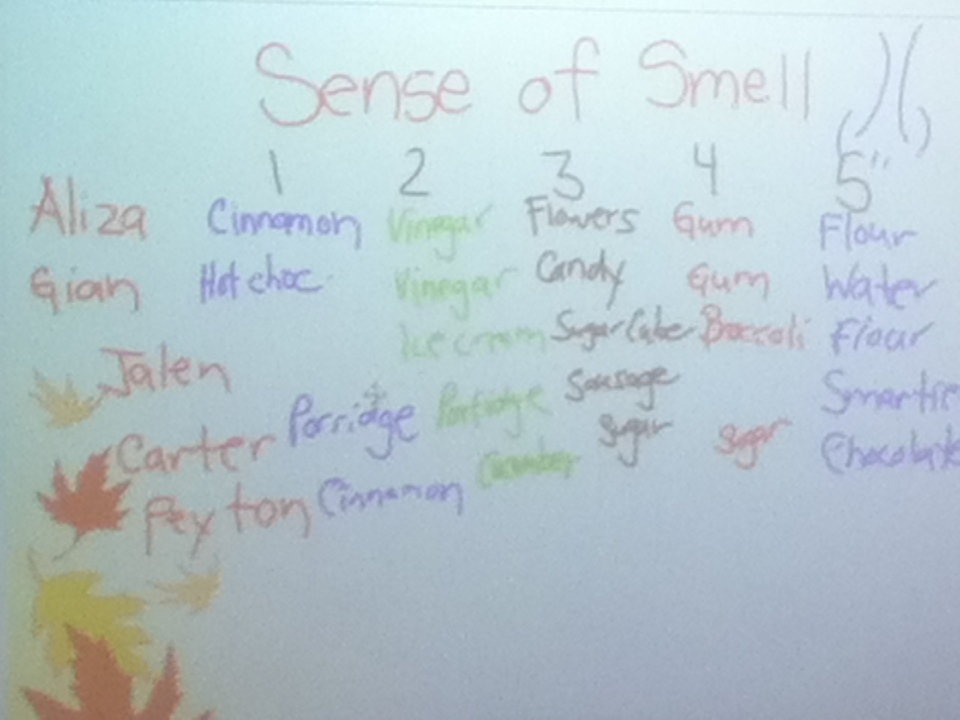 Sense of Smell
1 2 3 4 5
Aliza Cinnamon Vinegar Flowers Gum Flour
Gian Hot choc. Vinegar Candy Gum Water
Jalen Ice cream Sugar Cube Broccoli Flour
Carter Porridge Porridge Sausage Smartie
Peyton Cinnamon Cucumber Sugar Sugar Chocolate